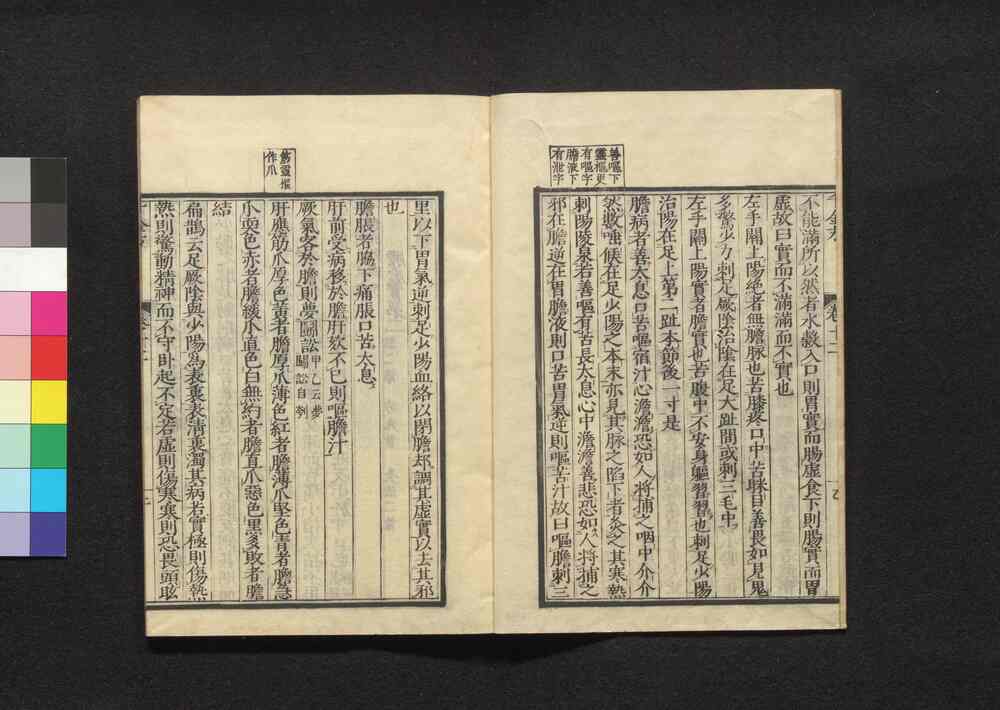 善嘔下
靈樞更
有嘔字
膽液下
有泄字
不能滿所以然者水穀入口則胃實而腸虛食下則腸實而胃
虛故曰實而不滿滿而不實也
左手關上陽絕者無膽脉也苦膝疼口中苦眯目善畏如見鬼
多驚少力刺足厥陰治陰在足大趾間或刺三毛中
左手關上陽實者膽實也苦腹中不安身軀習習也刺足少陽
治陽在足上第二趾本節後一寸是
膽病者善太息口苦嘔宿汁心澹澹恐如人將捕之咽中介介
然數唾候在足少陽之本末亦見其脉之陷下者灸之其寒熱
刺陽陵泉若善嘔有苦長太息心中澹澹善悲恐如人將捕之
邪在膽逆在胃膽液則口苦胃氣逆則嘔苦汁故曰嘔膽刺三
筋靈樞
作爪
里以下胃氣逆刺足少陽血絡以閉膽却調其虛實以去其邪
也
膽脹者脇下痛脹口苦太息
肝前受病移於膽肝欬不已則嘔膽汁
厥氣客於膽則夢鬭訟甲乙云夢鬭訟自刳
肝應筋爪厚色黃者膽厚爪薄色紅者膽薄爪堅色青者膽急
爪耎色赤者膽緩爪直色白無約者膽直爪惡色黑多敗者膽
結
扁鵲云足厥陰與少陽爲表裏表清裏濁其病若實極則傷熱
熱則驚動精神而不守卧起不定若虛則傷寒寒則恐畏頭眩